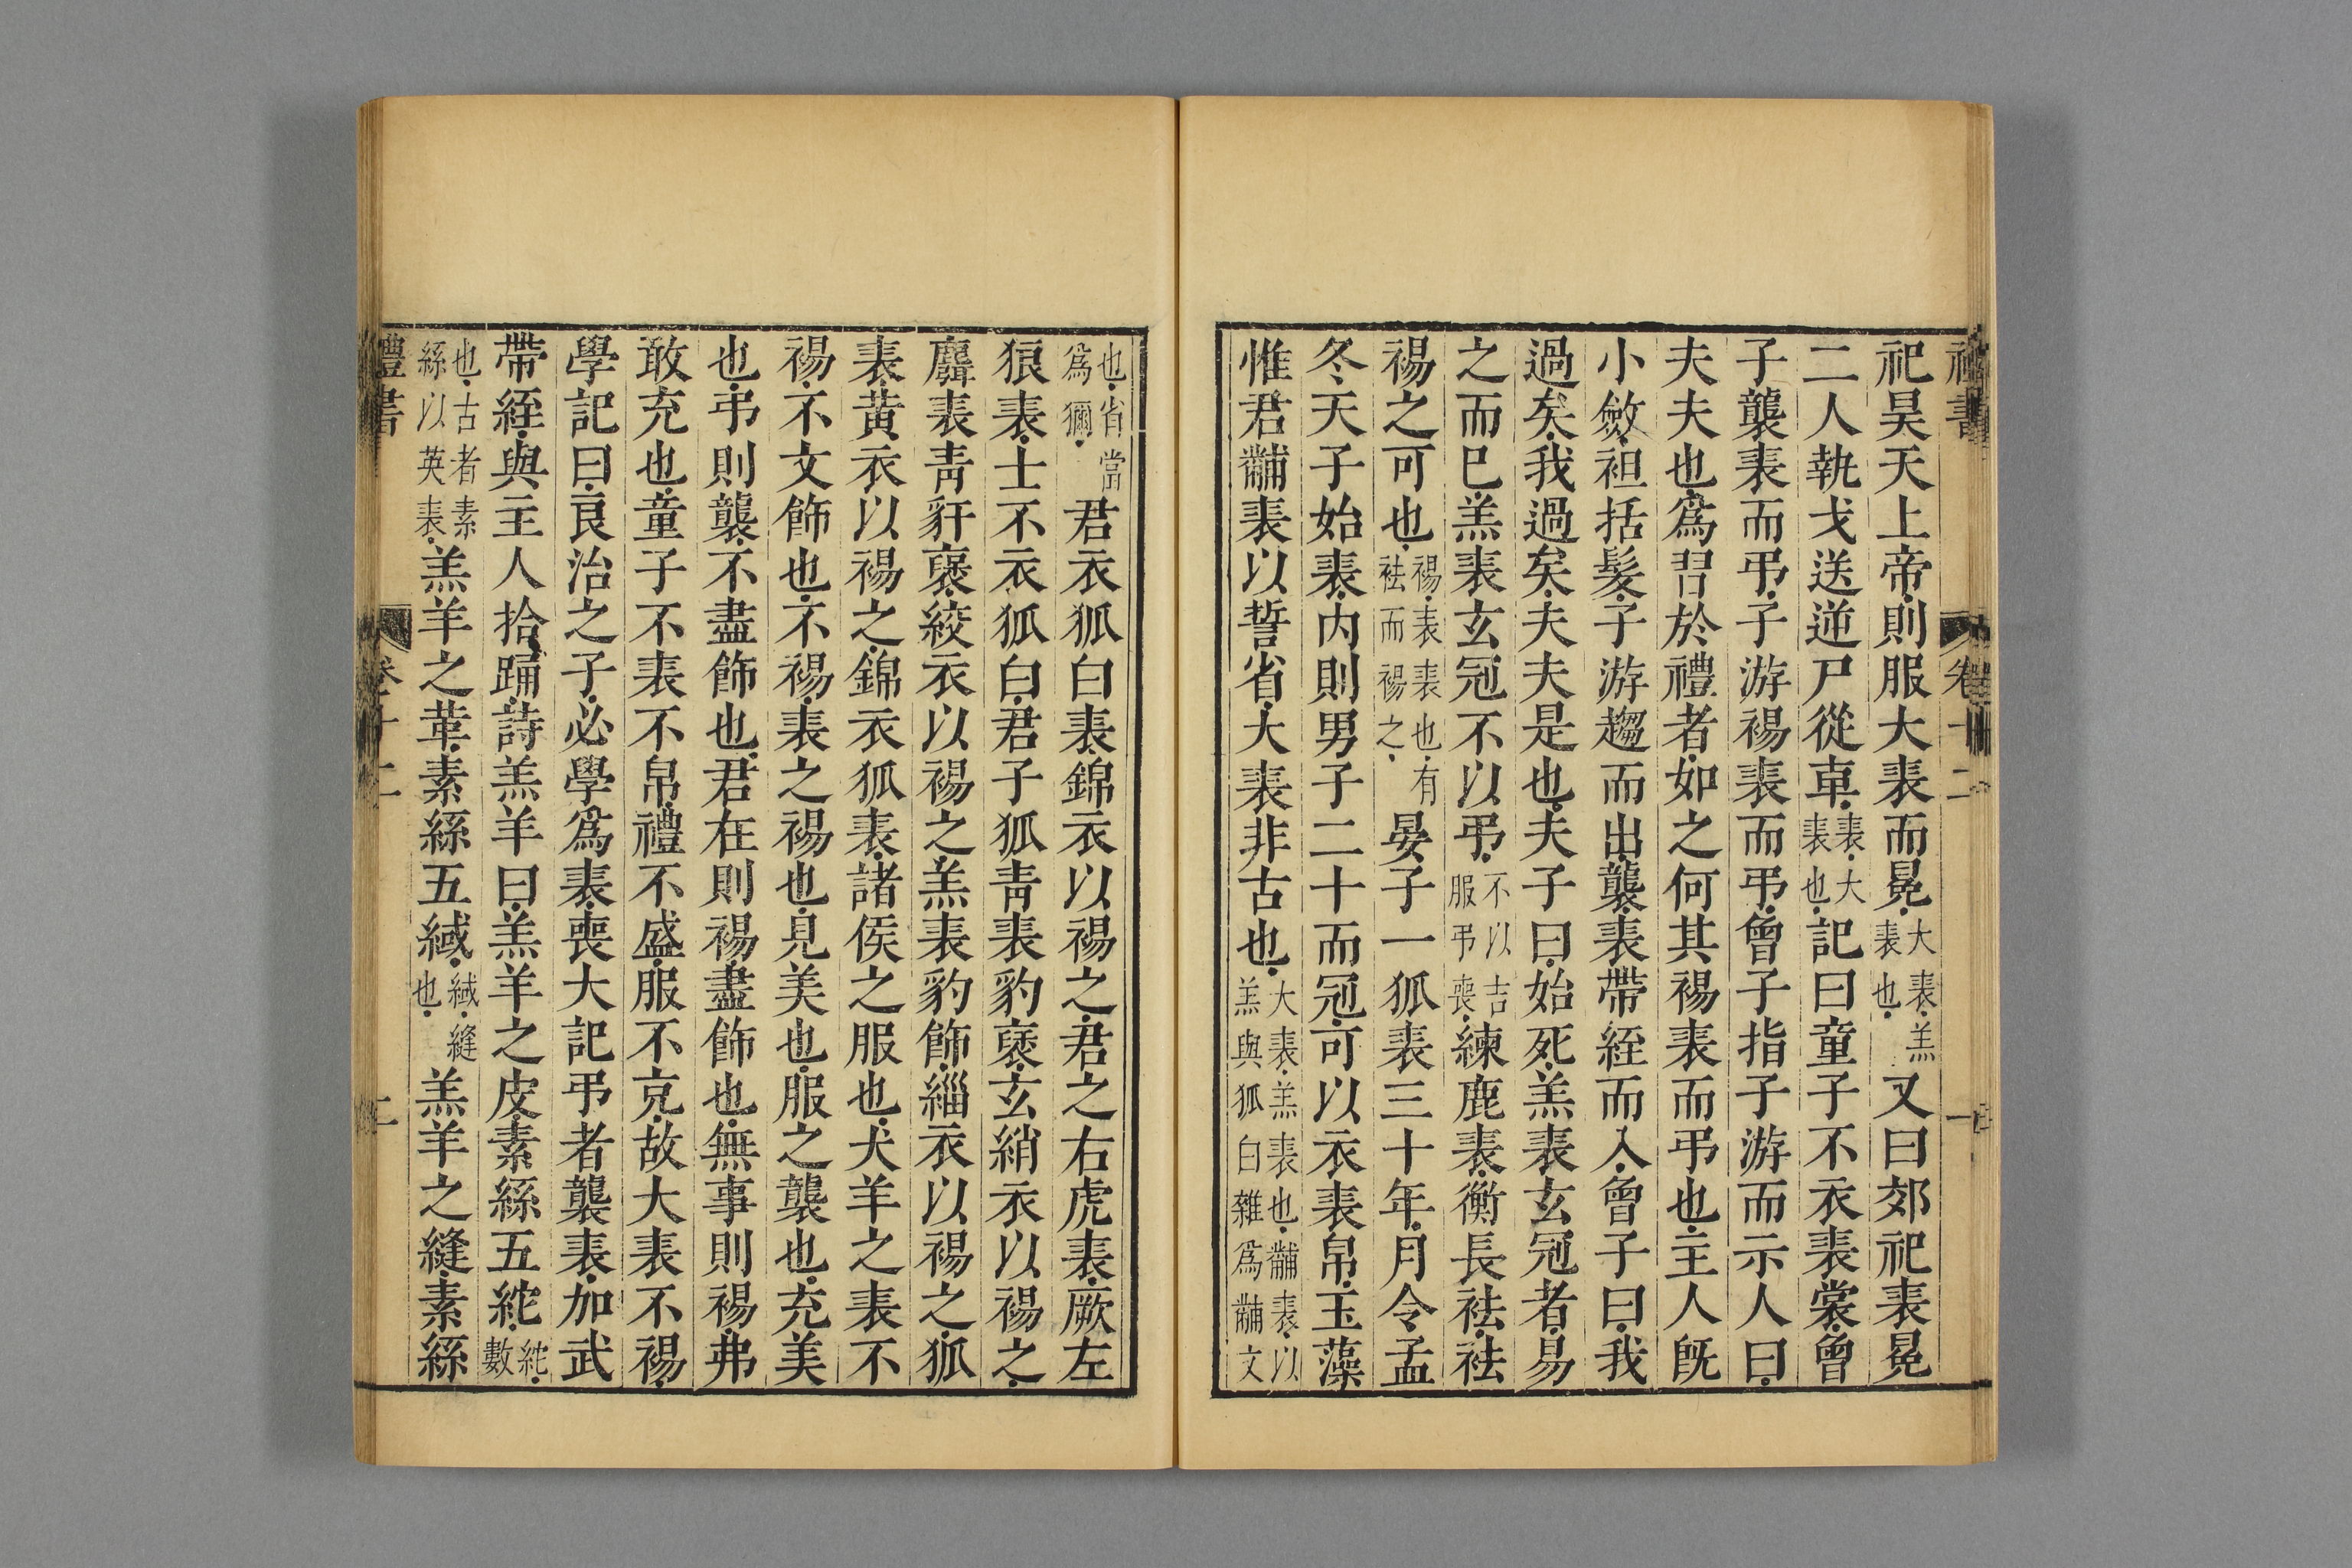 禮書 卷十二 一
祀昊天上帝則服大裘而冕大裘羔裘也又曰郊祀裘冕
二人執戈送逆尸從車裘大裘也記曰童子不衣裘裳曾
子襲裘而弔子游裼裘而弔曾子指子游而示人曰
夫夫也爲習於禮者如之何其裼裘而弔也主人旣
小斂袒括髮子游趨而出襲裘帶絰而入曾子曰我
過矣我過矣夫夫是也夫子曰始死羔裘玄冠者易
之而已羔裘玄冠不以弔不以吉服弔喪練鹿裘衡長袪袪
裼之可也裼表裘也有袪而裼之晏子一狐裘三十年月令孟
冬天子始裘內則男子二十而冠可以衣裘帛玉藻
惟君黼裘以誓省大裘非古也大裘羔裘也黼裘以羔與狐白雜爲黼文
也省當爲獮君衣狐白裘錦衣以裼之君之右虎裘厥左
狼裘士不衣狐白君子狐青裘豹褎玄綃衣以裼之
麛裘青豻褎絞衣以裼之羔裘豹飾緇衣以裼之狐
裘黃衣以裼之錦衣狐裘諸侯之服也犬羊之裘不
裼不文飾也不裼裘之裼也見美也服之襲也充美
也弔則襲不盡飾也君在則裼盡飾也無事則裼弗
敢充也童子不裘不帛禮不盛服不充故大裘不裼
學記曰良冶之子必學爲裘喪大記弔者襲裘加武
帶絰與主人拾踊詩羔羊曰羔羊之皮素絲五紽紽數
也古者素絲以英裘羔羊之革素絲五緎緎縫也羔羊之縫素絲
禮書 卷十二 二